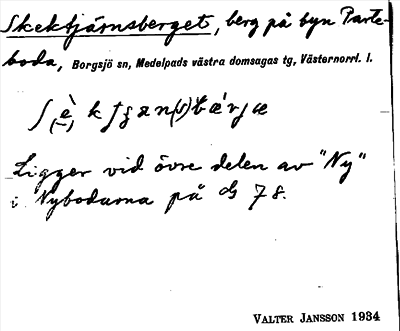 Skektjärnsberget, berg på byn Parte-
boda, Borgsjö sn, Medelpads västra domsagas tg, Västernorrl. l.
Ligger vid övre delen av "Ny"
i Nybodarna på dG 78.
VALTER JANSSON 1934